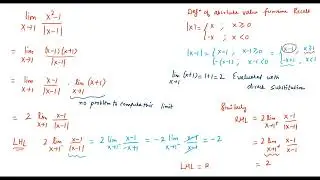 lim x→1 x²-1 / |x-1|
= lim x→1 (x-1)(x+1) / |x-1|
= lim x→1 x-1 / |x-1| · lim x→1 (x+1)
no problem to compute this limit
= 2 lim x→1 x-1 / |x-1|
LHL 2 lim x→1⁻ x-1 / |x-1| = 2 lim x→1⁻ x-1 / -(x-1) = -2 lim x→1⁻ x-1 / x-1 = -2
Defⁿ of absolute value function Recall
|x| = { x , x≥0
-x , x<0
|x-1| = { x-1 , x-1≥0
-(x-1) , x-1<0
= { x-1 , x≥1
-x+1 , x<1
lim x→1 (x+1) = 1+1 = 2 Evaluated with
direct substitution
Similarly
RHL = 2 lim x→1⁺ x-1 / |x-1|
= 2 lim x→1⁺ x-1 / x-1
= 2
LHL ≠ R